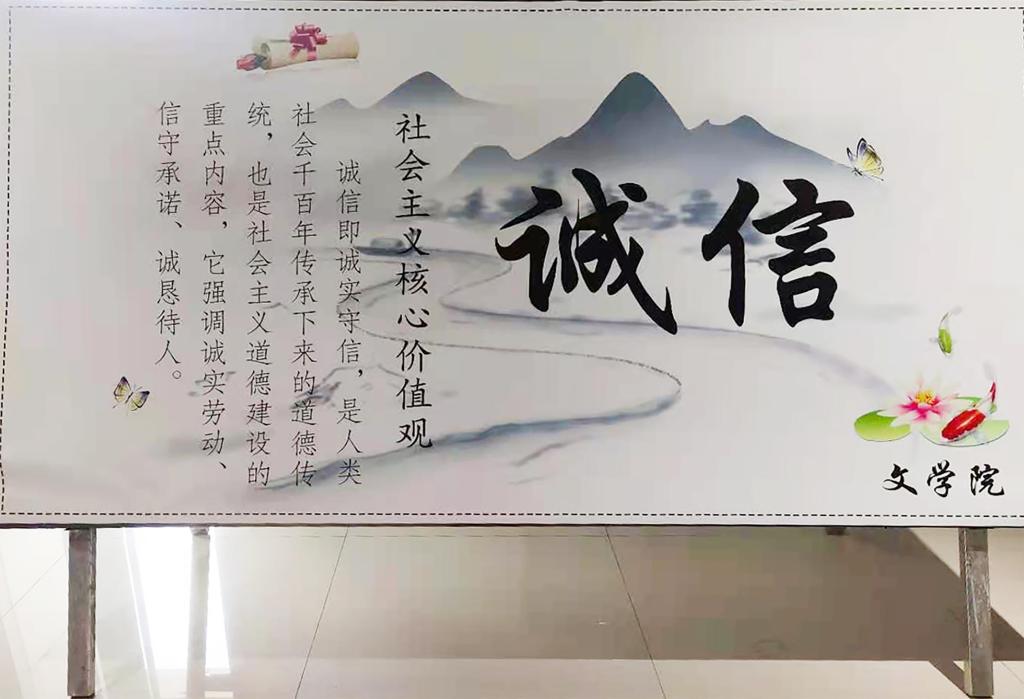 诚信
社会主义核心价值观
诚信即诚实守信，是人类
社会千百年传承下来的道德传
统，也是社会主义道德建设的
重点内容，它强调诚实劳动、
信守承诺、诚恳待人。
文学院